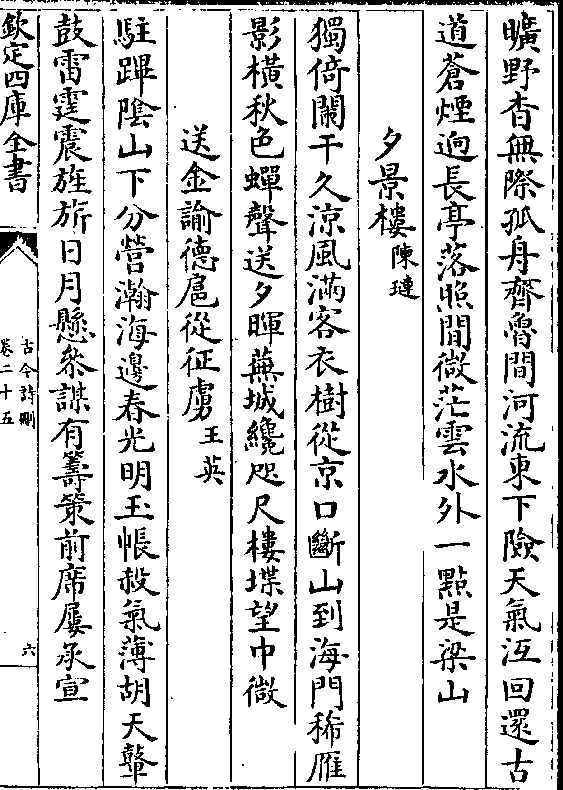 曠野杳無際孤舟齊魯間河流東下險天氣沍回還古
道蒼煙逈長亭落照閒微茫雲水外一點是梁山
夕景樓陳璉
獨倚闌干久涼風滿客衣樹從京口斷山到海門稀雁
影橫秋色蟬聲送夕暉蕪城纔咫尺樓堞望中微
送金諭德扈從征虜王英
駐蹕陰山下分營瀚海邊春光明玉帳殺氣薄胡天鼙
鼓雷霆震旌旂日月懸叅謀有籌策前席屢承宣
欽定四庫全書
古今詩刪
卷二十五
六